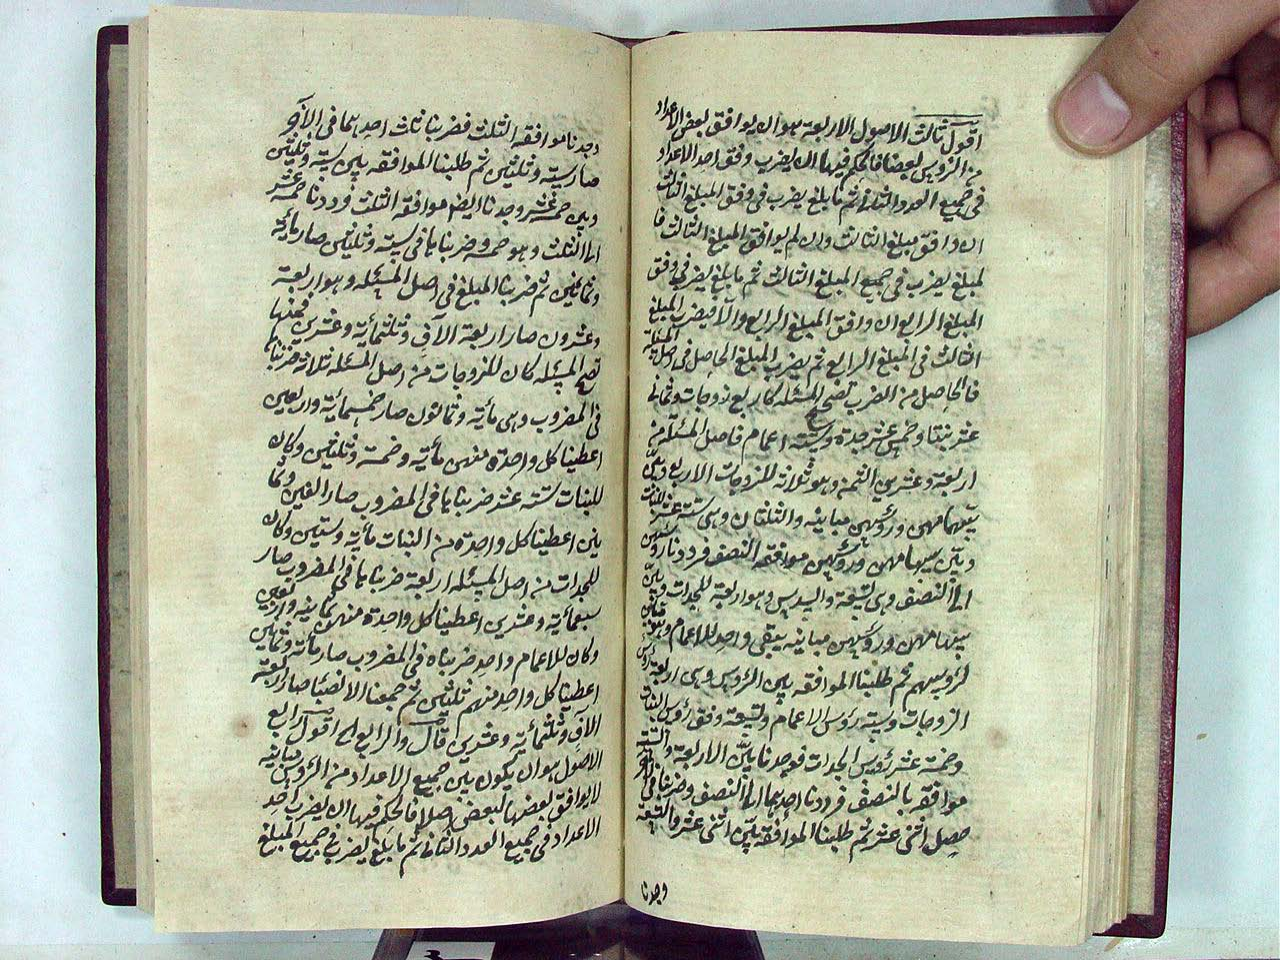 اقول ثالث الاصول الاربعة هو ان يوافق بعض الاعداد
من الرؤس لبعضها فالحكم فيها ان يضرب وفق احد الاعداد
فى جميع العدد الثانى ثم ما بلغ يضرب فى وفق المبلغ الثالث
ان وافق مبلغ الثالث وان لم يوافق المبلغ الثالث فا
لمبلغ يضرب فى جميع المبلغ الثالث ثم ما بلغ يضرب فى وفق
المبلغ الرابع ان وافق المبلغ الرابع والا فيضرب المبلغ
الثالث فى المبلغ الرابع ثم يضرب المبلغ الحاصل فى اصل المسئلة
فالحاصل من الضرب تصح المسئلة كاربع زوجات وثمانى
عشر بنتا وخمس عشر جدة وستة اعمام فاصل المسئلة من
اربعة وعشرين الثمن وهو ثلاثة للزوجات الاربع وبين
سهامهن ورؤسهن مباينة والثلثان وهى ستة عشر للبنات
وبين سهامهن ورؤسهن موافقة النصف فرددنا رؤسهن
الى النصف وهى تسعة والسدس وهو اربعة للجدات وبين
سهامهن ورؤسهن مباينة يبقى واحد للاعمام وهو مباين
لرؤسهم ثم طلبنا الموافقة بين الرؤس وهى اربعة رؤس
الزوجات وستة رؤس الاعمام وتسعة وفق رؤس البنات
وخمسة عشر رؤس الجدات فوجدنا بين الاربعة والستة
موافقة بالنصف فرددنا احدهما الى النصف وضربنا فى الاخر
حصل اثنى عشر ثم طلبنا الموافقة بين اثنى عشر والتسعة
وجدنا
وجدنا موافقة الثلث فضربنا ثلث احدهما فى الاخر
صار ستة وثلثين ثم طلبنا الموافقة بين ستة وثلثين
وبين خمسة عشر وجدنا ايضا موافقة الثلث فرددنا خمسة عشر
الى الثلث وهو خمسة وضربناها فى ستة وثلثين صار مأية
وثمانين ثم ضربنا المبلغ فى اصل المسئلة وهو اربعة
وعشرون صار اربعة الاف وثلثمأية وعشرين فمنها
تصح المسئلة كان للزوجات من اصل المسئلة ثلاثة ضربناها
فى المضروب وهى مأية وثمانون صار خمسمائة واربعين
اعطينا كل واحدة منهن مأية وخمسة وثلثين وكان
للبنات ستة عشر ضربناها فى المضروب صار الفين وثما
نين اعطينا كل واحدة من البنات مأية وستين وكان
للجدات من اصل المسئلة اربعة ضربناها فى المضروب صار
سبعمائة وعشرين اعطينا كل واحدة منهن ثمانية واربعين
وكان للاعمام واحد ضربناه فى المضروب صار مأية وثمانين
اعطينا كل واحد منهم ثلثين ثم جمعنا الانصباء صار اربعة
الاف وثلثمأية وعشرين قال والرابع الخ اقول رابع
الاصول هو ان يكون بين جميع الاعداد من الرؤس مباينة
لا يوافق بعضها لبعض اصلا فالحكم فيها ان يضرب احد
الاعداد فى جميع العدد الثانى ثم ما بلغ يضرب فى جميع المبلغ